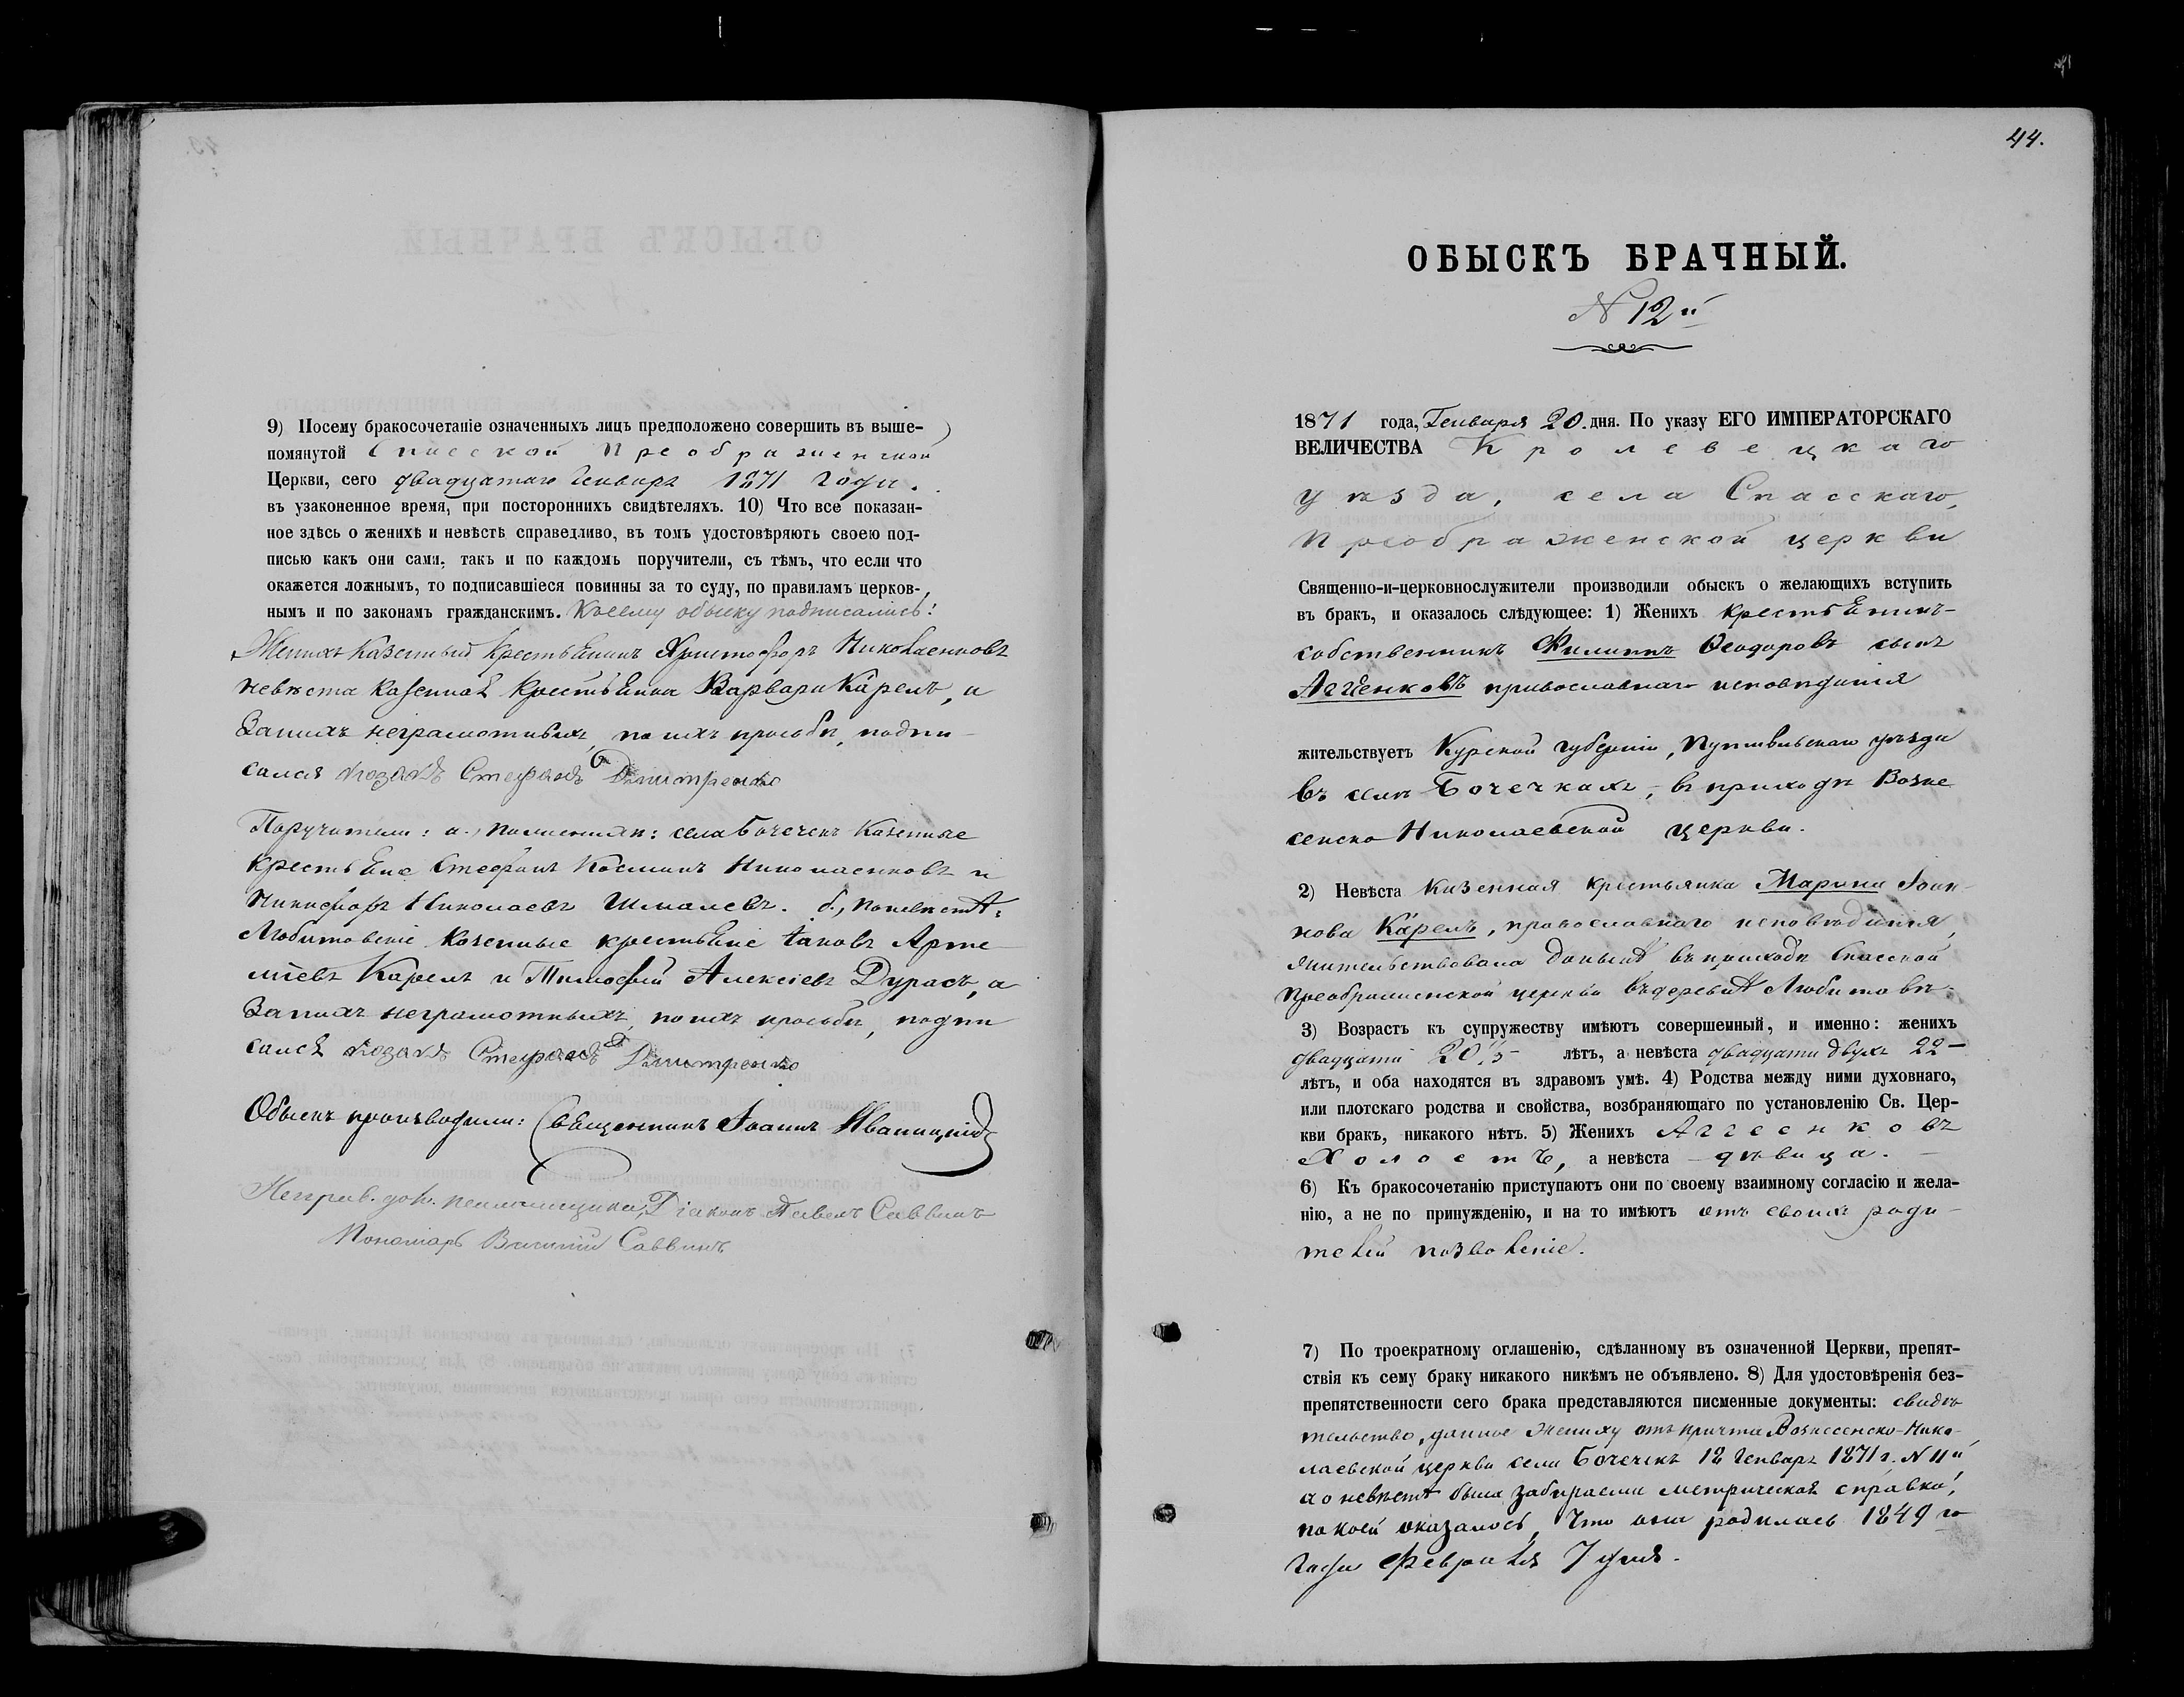 9) Посему бракосочетаніе означенныхъ лицъ предположено совершить въ выше-
помянутой Спасской Преображенской
Церкви, сего двадцатаго Генваря 1871 года.
въ узаконенное время, при постороннихъ свидѣтеляхъ. 10) Что все показан-
ное здѣсь о женихѣ и невѣстѣ справедливо, въ томъ удостовѣряютъ своею под-
писью какъ они сами, такъ и по каждомъ поручители, съ тѣмъ, что если что
окажется ложнымъ, то подписавшіеся повинны за то суду, по правиламъ церков-
нымъ и по законамъ гражданскимъ. К сему обыску подписались:
Женихъ казенный крестьянинъ Христофоръ Николаенковъ
невѣста казенная крестьянка Варвара Карелъ, а
за нихъ неграмотныхъ, по ихъ просьбѣ, подпи-
сался козакъ Стефанъ Дмитренко
Поручители: а., по женихѣ: села Бочечекъ казенные
крестьяне Стефанъ Косминъ Николаенковъ и
Никифоръ Николаевъ Шмалевъ. б., по невѣстѣ:
Любитовскіе казенные крестьяне Іаковъ Арте-
міевъ Карелъ и Тимофей Алексіевъ Дурасъ, а
за нихъ неграмотныхъ, по ихъ просьбѣ, подпи
сался козакъ Стефанъ Дмитренко
Обыскъ производили: Священникъ Іоаннъ Иваницкій
Діаконъ Павелъ Саввинъ
Пономарь Саввинъ
44.
ОБЫСКЪ БРАЧНЫЙ.
N 12й
1871 года, Генваря 20. дня. По указу ЕГО ИМПЕРАТОРСКАГО
ВЕЛИЧЕСТВА Кролевецкаго
уѣзда, села Спасскаго,
Преображенской церкви
Священно-и-церковнослужители производили обыскъ о желающихъ вступить
въ бракъ, и оказалось слѣдующее: 1) Женихъ крестьянинъ-
собственникъ Филиппъ Ѳеодоровъ сынъ
Аггѣенковъ православнаго исповѣданія
жительствуетъ Курской губерніи, Путивльскаго уѣзда
въ селѣ Бочечкахъ, въ приходѣ Возне
сенско Николаевской церкви.
2) Невѣста казенная крестьянка Марина Іоан-
нова Карелъ, православнаго исповѣданія,
жительствовала донынѣ въ приходѣ Спасской
Преображенской церкви въ деревнѣ Любитовѣ.
3) Возрастъ къ супружеству имѣютъ совершенный, и именно: женихъ
двадцати 20,5 лѣтъ, а невѣста двадцати двухъ 22-
лѣтъ, и оба находятся въ здравомъ умѣ. 4) Родства между ними духовнаго,
или плотскаго родства и свойства, возбраняющаго по установленію Св. Цер-
кви бракъ, никакого нѣтъ. 5) Женихъ Аггеенковъ
Холостъ, а невѣста дѣвица.
6) Къ бракосочетанію приступаютъ они по своему взаимному согласію и жела-
нію, а не по принужденію, и на то имѣютъ отъ своихъ роди-
телей позволеніе.
7) По троекратному оглашенію, сдѣланному въ означенной Церкви, препят-
ствія къ сему браку никакого никѣмъ не объявлено. 8) Для удостовѣренія без-
препятственности сего брака представляются писменные документы: свидѣ
тельство, данное жениху отъ причта Вознесенско-Нико-
лаевской церкви села Бочечекъ 18 Генваря 1871 г. N 11й
а о невѣстѣ была забираема метрическая справка,
по коей оказалось, что она родилась 1849 го
года Февраля 7 дня.